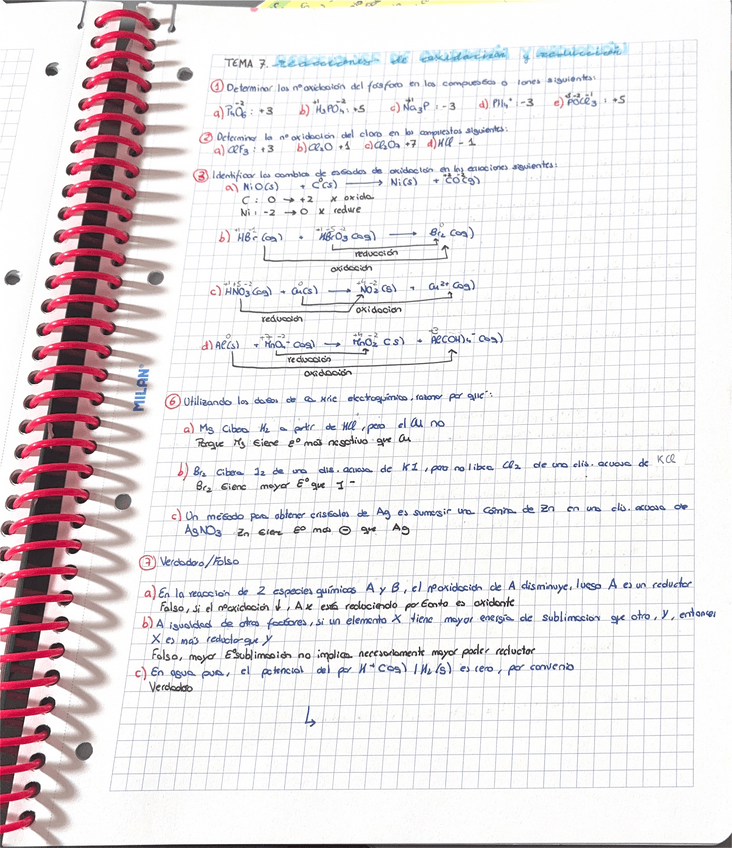 TEMA 7. Reacciones de oxidación y reducción
① Determinar los nº oxidación del fósforo en los compuestos o iones siguientes:
a) P₄O₆ : +3 b) H₃PO₄ : +5 c) Na₃P : -3 d) PH₄⁺ : -3 e) POCl₃ : +5
② Determina la nº oxidación del cloro en los compuestos siguientes:
a) ClF₃ : +3 b) Cl₂O +1 c) Cl₂O₇ +7 d) HCl - 1
③ Identificar los cambios de estados de oxidación en las ecuaciones siguientes:
a) NiO(s) + C(s) → Ni(s) + CO(g)
C : 0 → +2 x oxida
Ni : -2 → 0 x reduce
b) HBr (aq) + HBrO₃ (aq) → Br₂ (aq)
reducción
oxidación
c) HNO₃ (aq) + Cu(s) → NO₂ (g) + Cu²⁺ (aq)
oxidación
reducción
d) Al(s) + MnO₄⁻ (aq) → MnO₂ (s) + Al(OH)₄⁻ (aq)
reducción
oxidación
MILAN
⑥ Utilizando los datos de la serie electroquímica, razonar por qué:
a) Mg libera H₂ a partir de HCl, pero el Cu no
Porque Mg tiene Eº más negativo que Cu
b) Br₂ libera I₂ de una dis. acuosa de KI, pero no libera Cl₂ de una dis. acuosa de KCl
Br₂ tiene mayor Eº que I -
c) Un método para obtener cristales de Ag es sumergir una lámina de Zn en una dis. acuosa de
AgNO₃ Zn tiene Eº más ⊖ que Ag
⑦ Verdadero/Falso
a) En la reacción de 2 especies químicas A y B, el nºoxidación de A disminuye, luego A es un reductor
Falso, si el nºoxidación ↓, A x está reduciendo por tanto es oxidante
b) A igualdad de otros factores, si un elemento X tiene mayor energía de sublimación que otro, Y, entonces
X es más reductor que Y
Falso, mayor Eºsublimación no implica necesariamente mayor poder reductor
c) En agua pura, el potencial del par H⁺(aq) / H₂(g) es cero, por convenio
Verdadero
↳